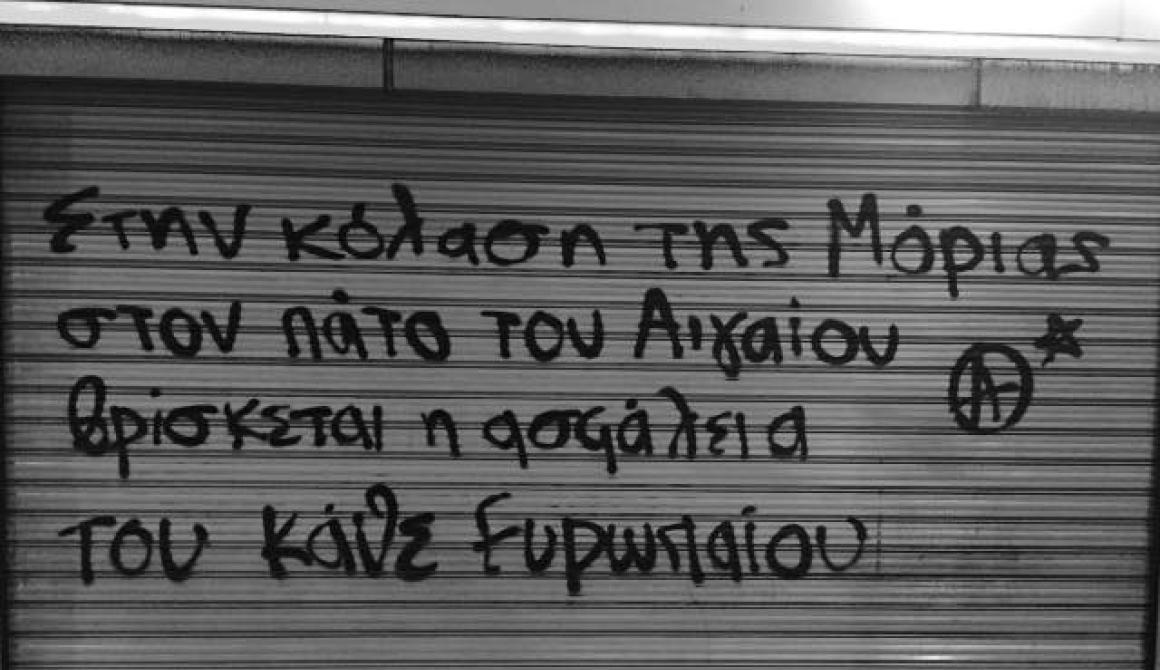 Στην κόλαση της Μόριας
στον πάτο του Αιγαίου
βρίσκεται η ασφάλεια
του κάθε Ευρωπαίου
Ⓐ